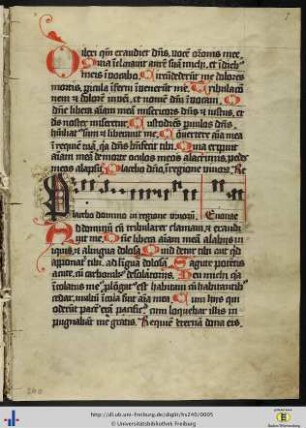 Dilexi qm exaudiet dns, vocē orōnis mee
Quia īclinavit aurē suā michi, et ī dieb9
meis īvocabo. Circūdederūt me dolores
mortis, picula īferni īvenerūt me. Tribulacō
nem et dolorē īveni, et nomē dnī īvocavi. O
dne libera aīam meā misericors dns et iustus, et
ds noster miseretur. Custodiēs pvulos dns,
hūiliat9 sum et liberavit me. Cōvertere aīa mea
ī requiē tuā, qa dns bnfecit tibi. Quia eripuit
aīam meā de morte oculos meos a lacrimis, pedes
meos a lapsu. Placebo dno, ī regione vivorū. Re
Placebo domino in regione vivorū, Evovae
Ad dominū cū tribularer clamavi, et exaudi
vit me. Dne libera aīam meā a labiis in
iquis, et a lingua dolosa. Quid detur tibi aut qd
apponat' tibi, ad līguā dolosā. Sagitte potētis
acute, cū carbonib9 desolatoriis. Heu michi qa
īcolatus me9 plōgat9 est habitavi cū habitantib9
cedar, multū īcola fuit aīa mea. Cum hiis qui
oderūt pacē erā pacific9, cum loquebar illis in
pugnabāt me gratis. Requiē eternā dona eis.
http://dl.ub.uni-freiburg.de/diglit/hs240/0005
© Universitätsbibliothek Freiburg